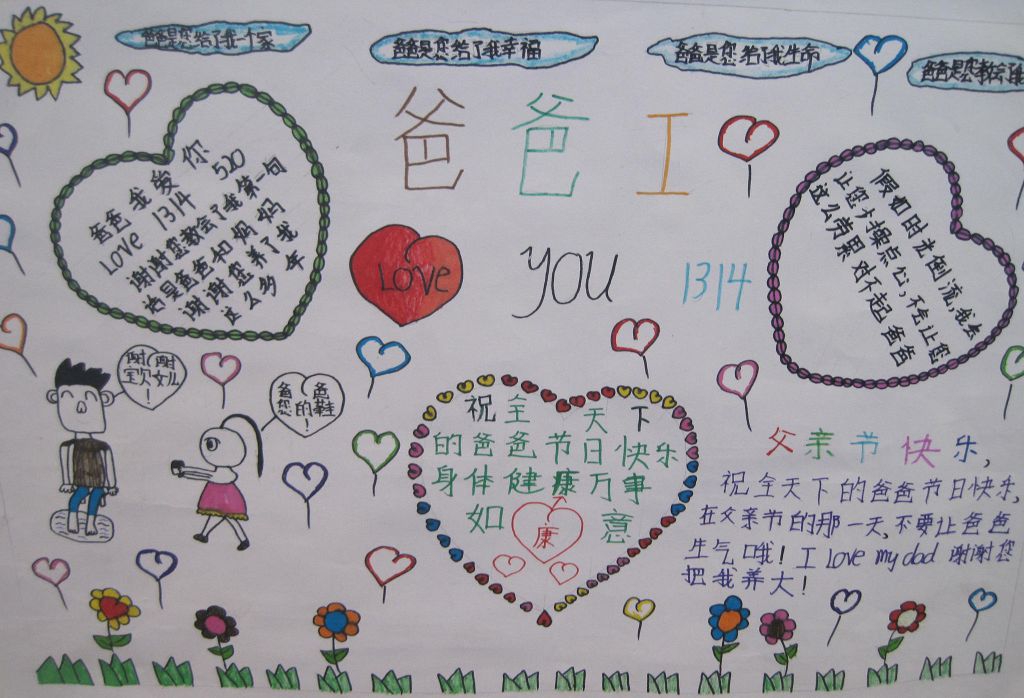 爸爸是您给了我一个家
爸爸是您给了我幸福
爸爸是您给了我生命
爸爸是您教会了我
爸爸 I
LOVE YOU 1314
爸爸我爱你
LOVE 1314 520
谢谢您教会了我第一句
话是爸爸和妈妈
谢谢您养了我
这么多年
假如时光倒流,我会
让您少操点心,不会让您
这么劳累 对不起 爸爸
谢谢
宝贝女儿
!
爸爸
您的鞋
!
祝全天下
的爸爸节日快乐
身体健康万事
如意
康
父亲节快乐,
祝全天下的爸爸节日快乐,
在父亲节的那一天,不要让爸爸
生气哦! I Love my dad 谢谢您
把我养大!